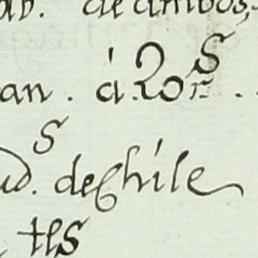 de ambos
an. á 20 r.s
ud.s de Chile
tes